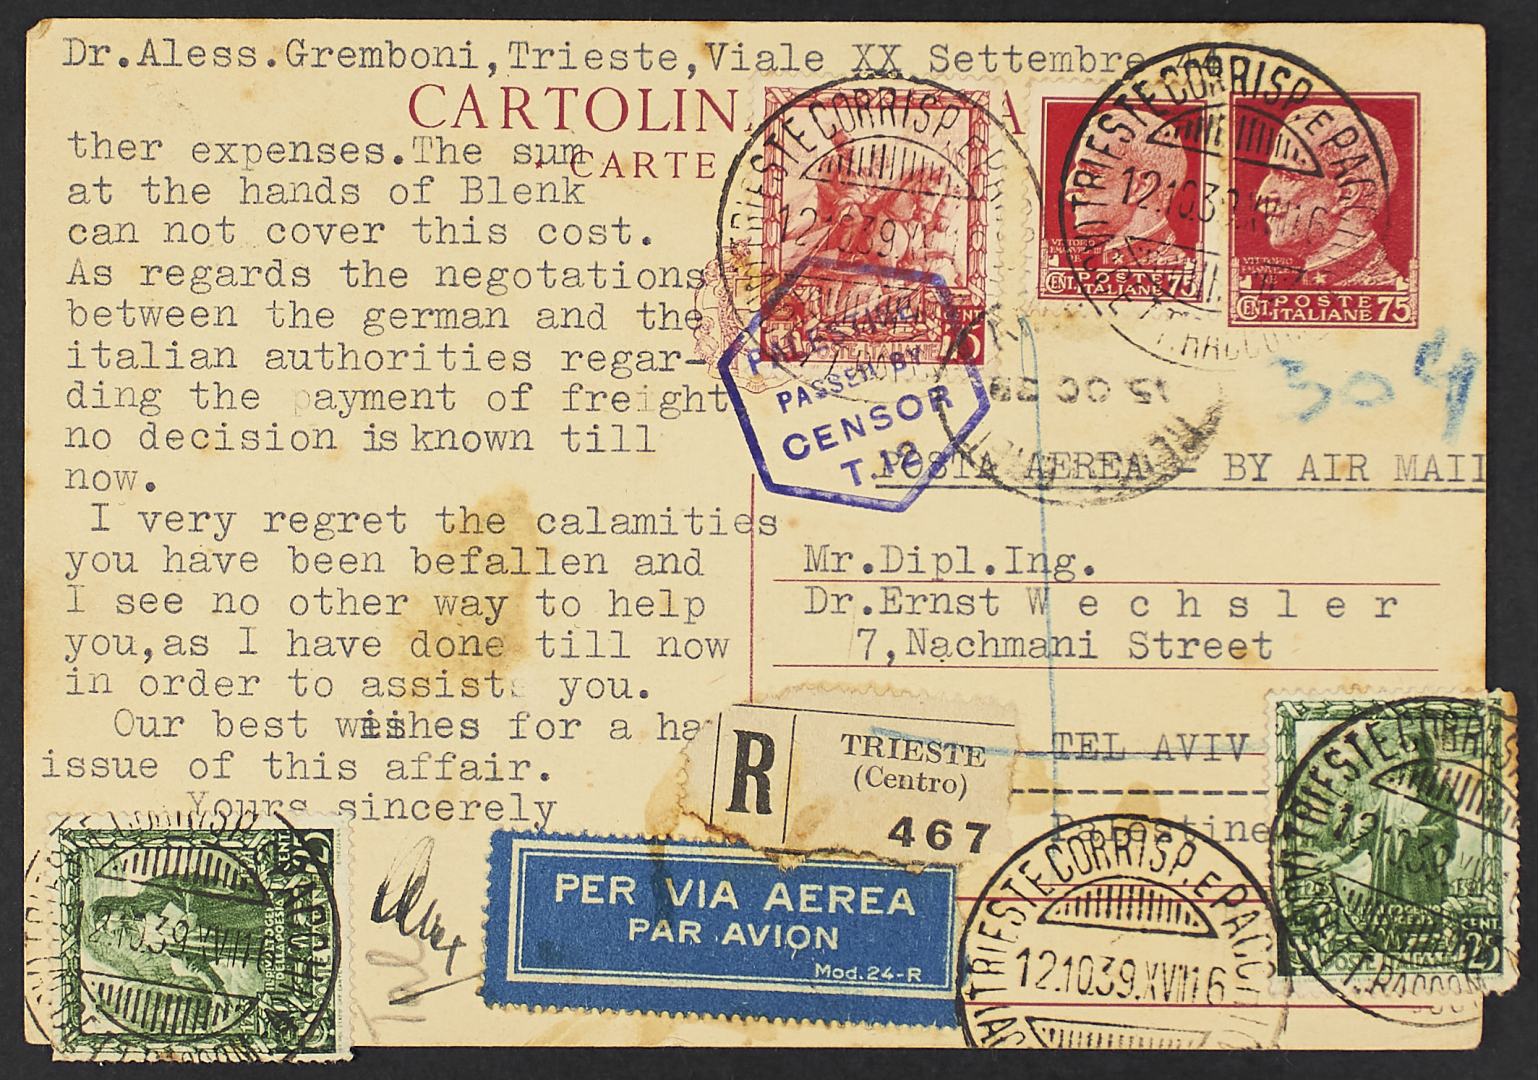 Dr.Aless.Gremboni,Trieste,Viale XX Settembre 44
CARTOLIN
CARTE
ther expenses.The sum
at the hands of Blenk
can not cover this cost.
As regards the negotations
between the german and the
italian authorities regar-
ding the payment of freight
no decision is known till
now.
I very regret the calamities
you have been befallen and
I see no other way to help
you,as I have done till now
in order to assist you.
Our best wishes for a ha
issue of this affair.
Yours sincerely
TRIESTE CORRISP. E
12.10.39
VITTORIO
POSTE
CENT. ITALIANE 75
TRIESTE CORRISP. E PACCHI
12.10.39.XVIII 16
VITTORIO
POSTE
CENT. ITALIANE 75
PALESTINE
PASSED BY
CENSOR
T.12
15 OC 39
304
POSTA AEREA - BY AIR MAIL
Mr.Dipl.Ing.
Dr.Ernst Wechsler
7,Nachmani Street
TEL AVIV
Palestine
R
TRIESTE
(Centro)
467
PER VIA AEREA
PAR AVION
Mod.24-R
TRIESTE CORRISP. E PACCHI
12.10.39.XVIII 16
TRIESTE CORRISP.
12.10.39
CENT 25
POSTE ITALIANE
12.10.39.XVIII 16
CENT 25